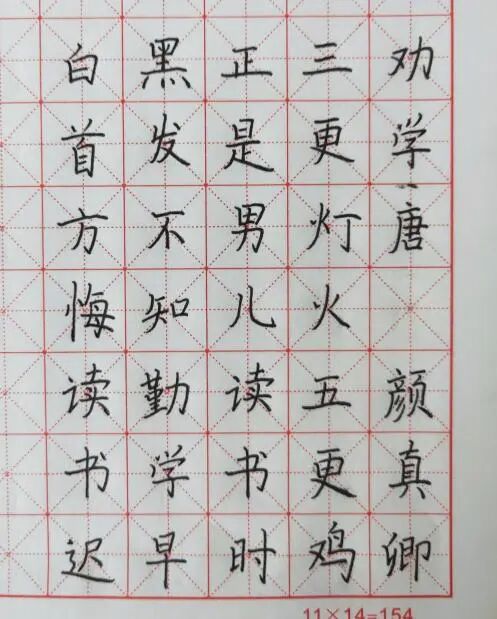 劝学·唐 颜真卿
三更灯火五更鸡
正是男儿读书时
黑发不知勤学早
白首方悔读书迟
11×14=154